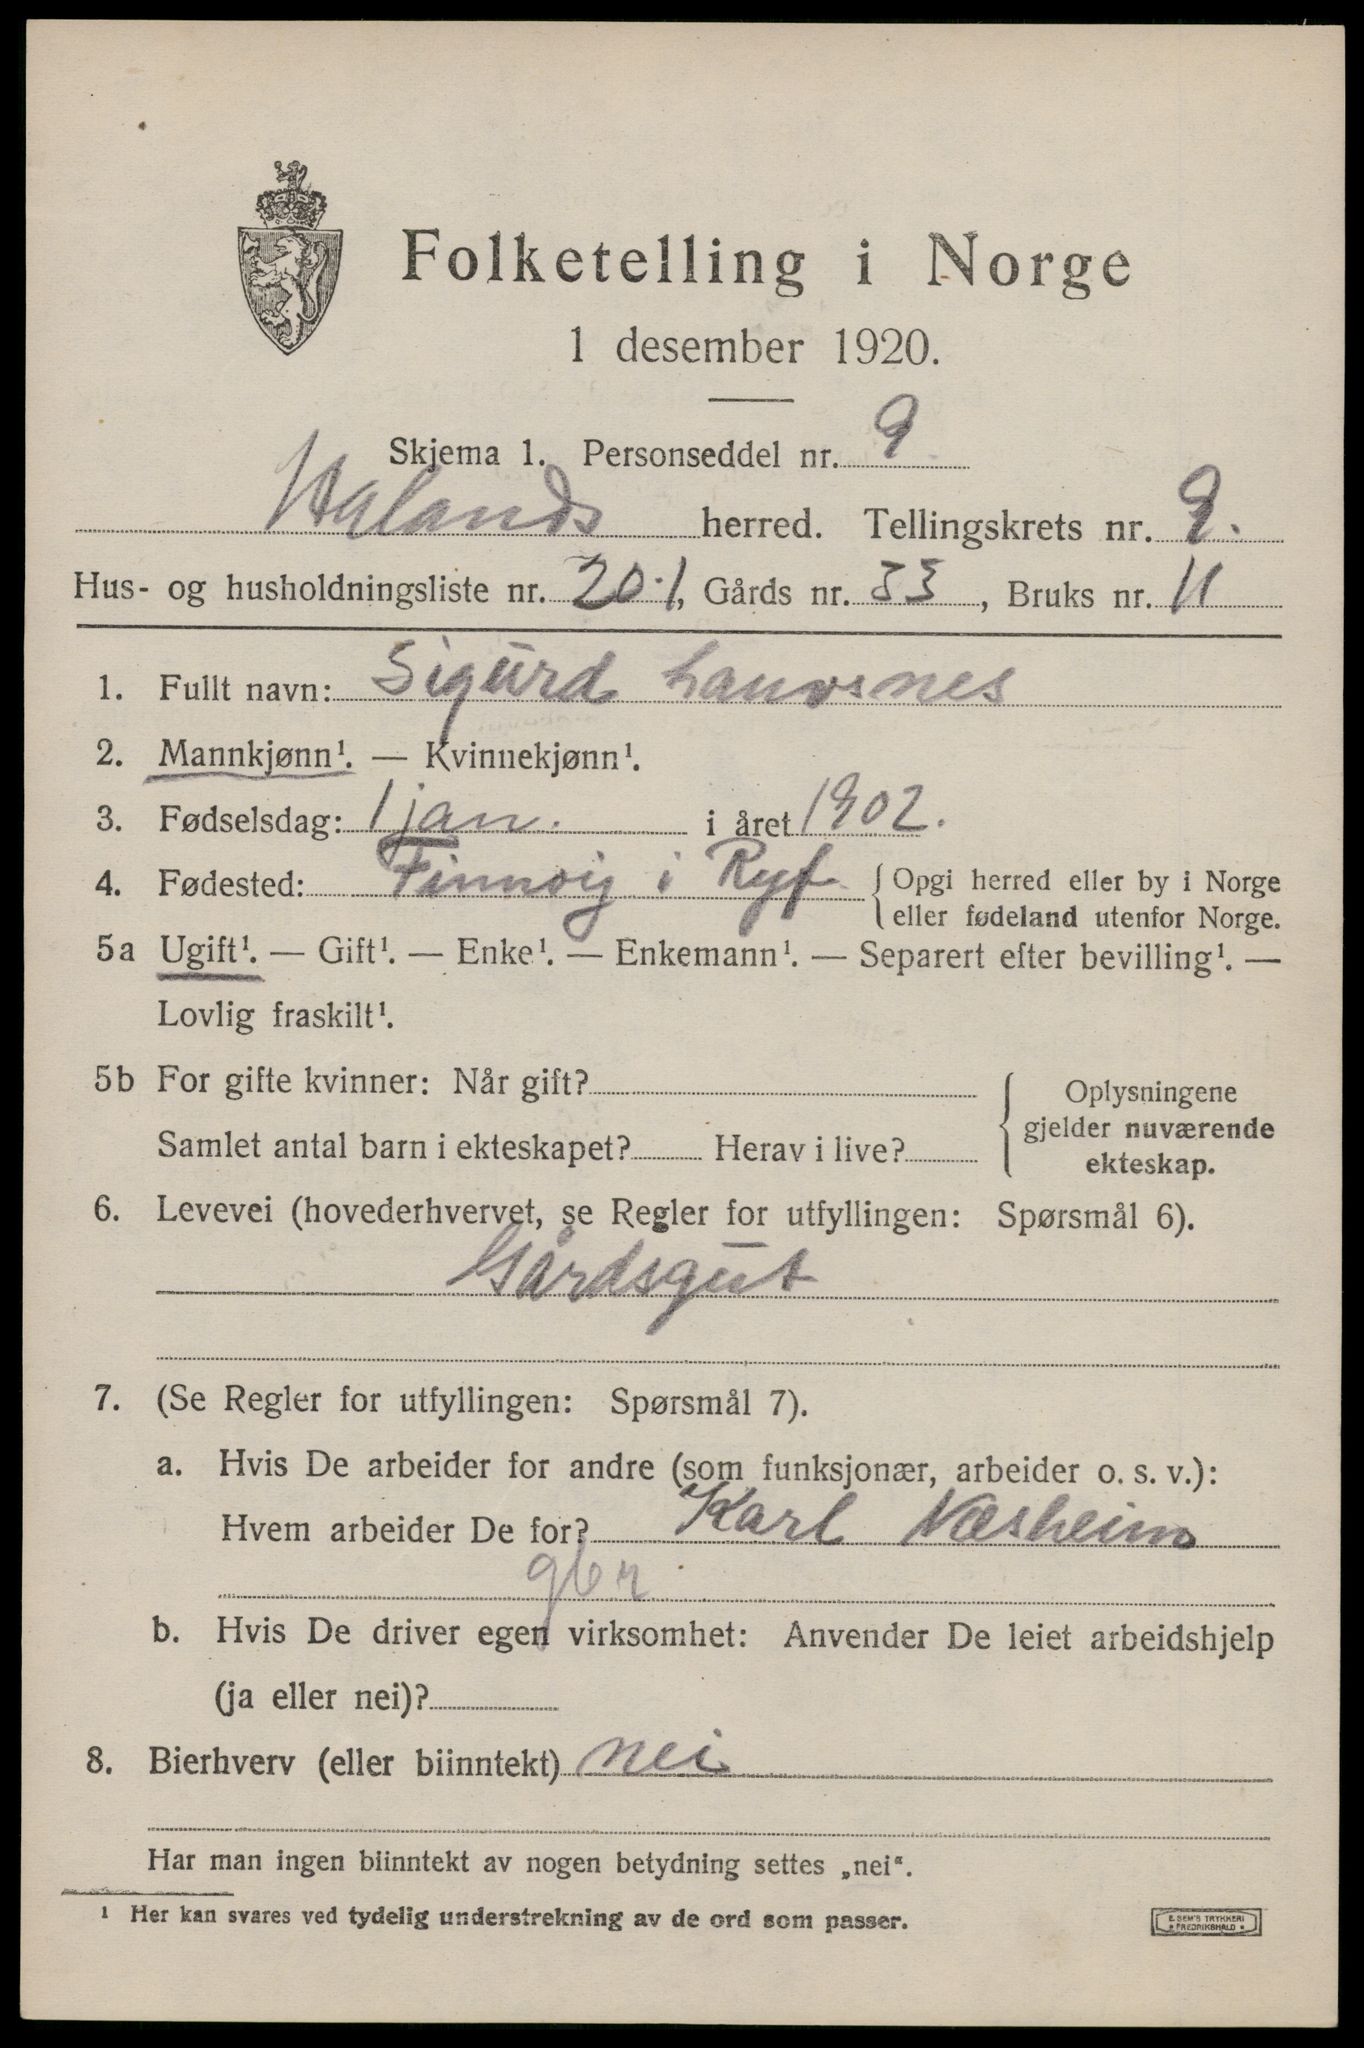 Folketelling i Norge
1 desember 1920.
Skjema 1. Personseddel nr. 9
Halands herred. Tellingskrets nr. 9.
Hus- og husholdningsliste nr. 20.1, Gårds nr. 33, Bruks nr. 11
1. Fullt navn: Sigurd Lauvsnes
2. Mannkjønn¹. — Kvinnekjønn¹.
3. Fødselsdag: 1 jan. i året 1902.
4. Fødested: Finnøig i Ryf. { Opgi herred eller by i Norge
eller fødeland utenfor Norge.
5a Ugift¹. — Gift¹. — Enke¹. — Enkemann¹. — Separert efter bevilling¹. —
Lovlig fraskilt¹.
5b For gifte kvinner: Når gift? { Oplysningene
gjelder nuværende
Samlet antal barn i ekteskapet? Herav i live? ekteskap.
6. Levevei (hovederhvervet, se Regler for utfyllingen: Spørsmål 6).
Gårdsgut
7. (Se Regler for utfyllingen: Spørsmål 7).
a. Hvis De arbeider for andre (som funksjonær, arbeider o. s. v.):
Hvem arbeider De for? Karl Næsheim
gbr
b. Hvis De driver egen virksomhet: Anvender De leiet arbeidshjelp
(ja eller nei)?
8. Bierhverv (eller biinntekt) nei
Har man ingen biinntekt av nogen betydning settes „nei“.
¹ Her kan svares ved tydelig understrekning av de ord som passer.
E. SEM'S TRYKKERI
FREDRIKSHALD